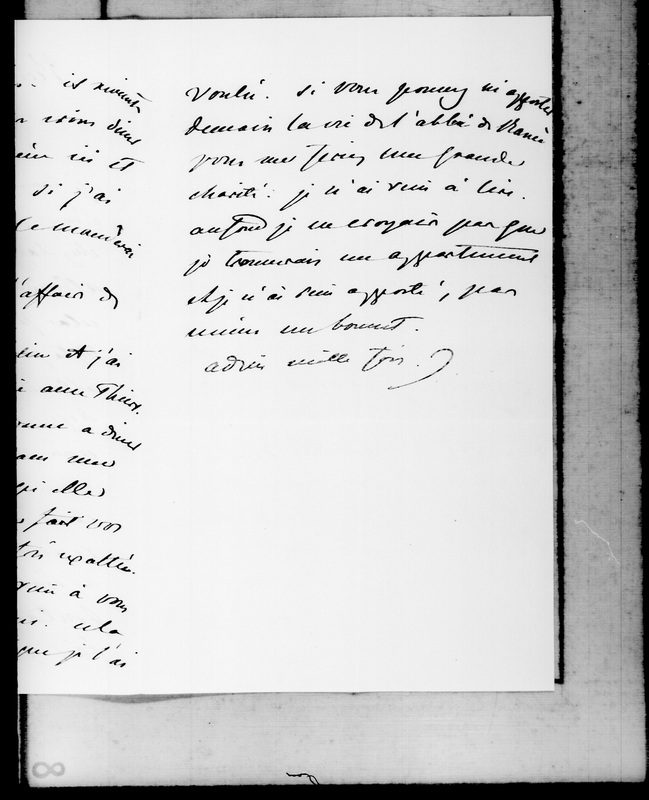 si j'ai
l'affaire de
et j'ai
avec Thiers.
a diner
elle
fait vos
à vous
cela
que je l'ai
voulu. si vous pouvez m'apporter
demain la vie de l'abbé de Rancé
vous me ferez une grande
charité. je n'ai rien à lire.
au fond je ne croyais pas que
je trouverais un appartement
et je n'ai rien apporté, pas
même un bonnet.
adieu mille fois.